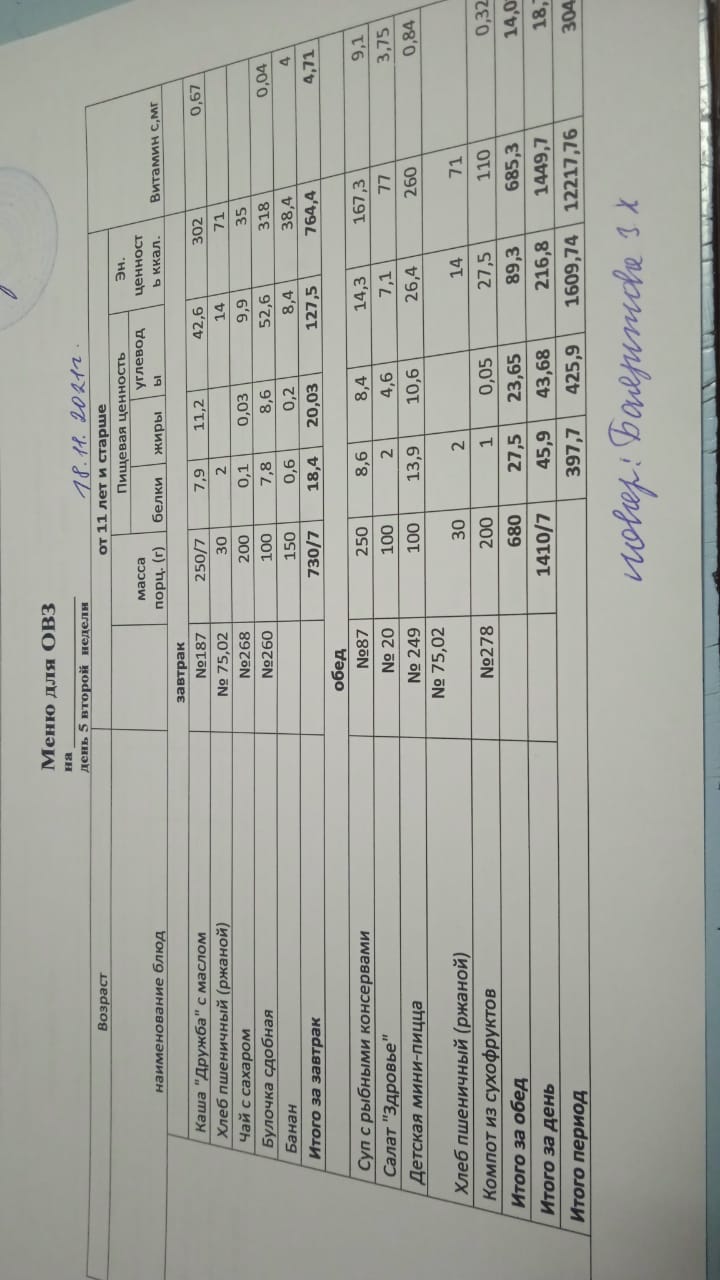 Меню для ОВЗ
на 18.11.2021г.
день 5 второй недели
Возраст от 11 лет и старше
наименование блюд масса порц. (г) Пищевая ценность Эн. ценност ь ккал. Витамин с,мг
белки жиры углевод ы
завтрак
Каша "Дружба" с маслом №187 250/7 7,9 11,2 42,6 302 0,67
Хлеб пшеничный (ржаной) № 75,02 30 2 14 71
Чай с сахаром №268 200 0,1 0,03 9,9 35
Булочка сдобная №260 100 7,8 8,6 52,6 318 0,04
Банан 150 0,6 0,2 8,4 38,4 4
Итого за завтрак 730/7 18,4 20,03 127,5 764,4 4,71
обед
Суп с рыбными консервами №87 250 8,6 8,4 14,3 167,3 9,1
Салат "Здровье" № 20 100 2 4,6 7,1 77 3,75
Детская мини-пицца № 249 100 13,9 10,6 26,4 260 0,84
Хлеб пшеничный (ржаной) № 75,02 30 2 14 71
Компот из сухофруктов №278 200 1 0,05 27,5 110 0,32
Итого за обед 680 27,5 23,65 89,3 685,3 14,0
Итого за день 1410/7 45,9 43,68 216,8 1449,7 18,
Итого период 397,7 425,9 1609,74 12217,76 304
повер: